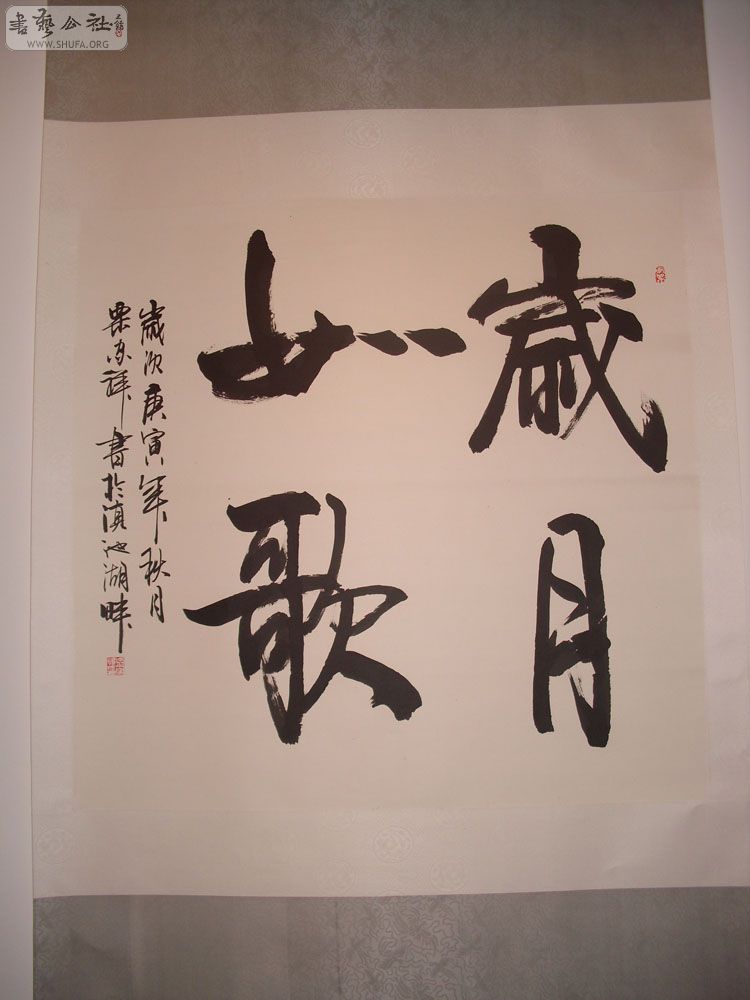 歲月
如歌
歲次庚寅年秋月
栗东祥書於滇池湖畔
書藝公社
WWW.SHUFA.ORG